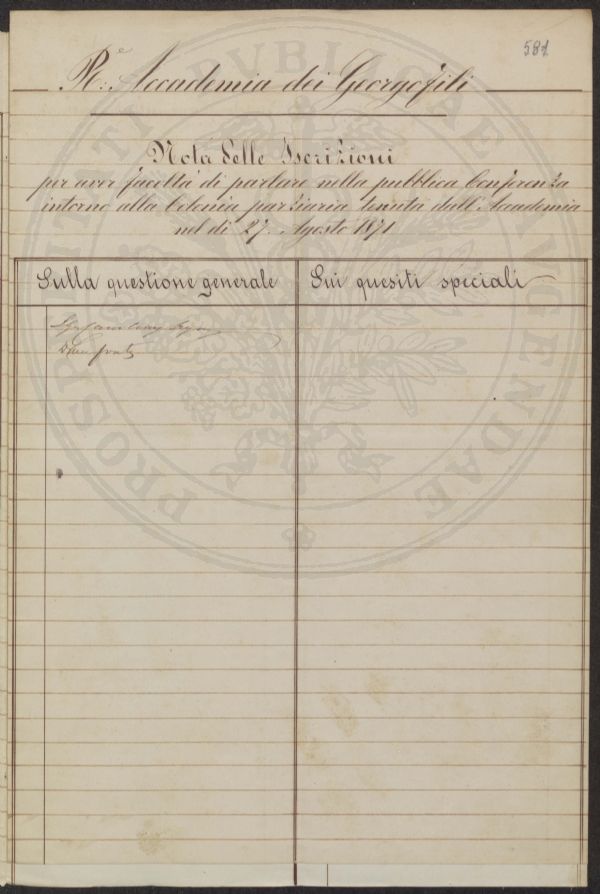 581
R.e Accademia dei Georgofili
Nota delle Iscrizioni
per aver facoltà di parlare nella pubblica Conferenza
intorno alla Colonia parziaria tenuta dall'Accademia
nel dì 27. Agosto 1871
Sulla questione generale
Sui quesiti speciali
PROSPERITATI PVBLICAE AVGENDAE